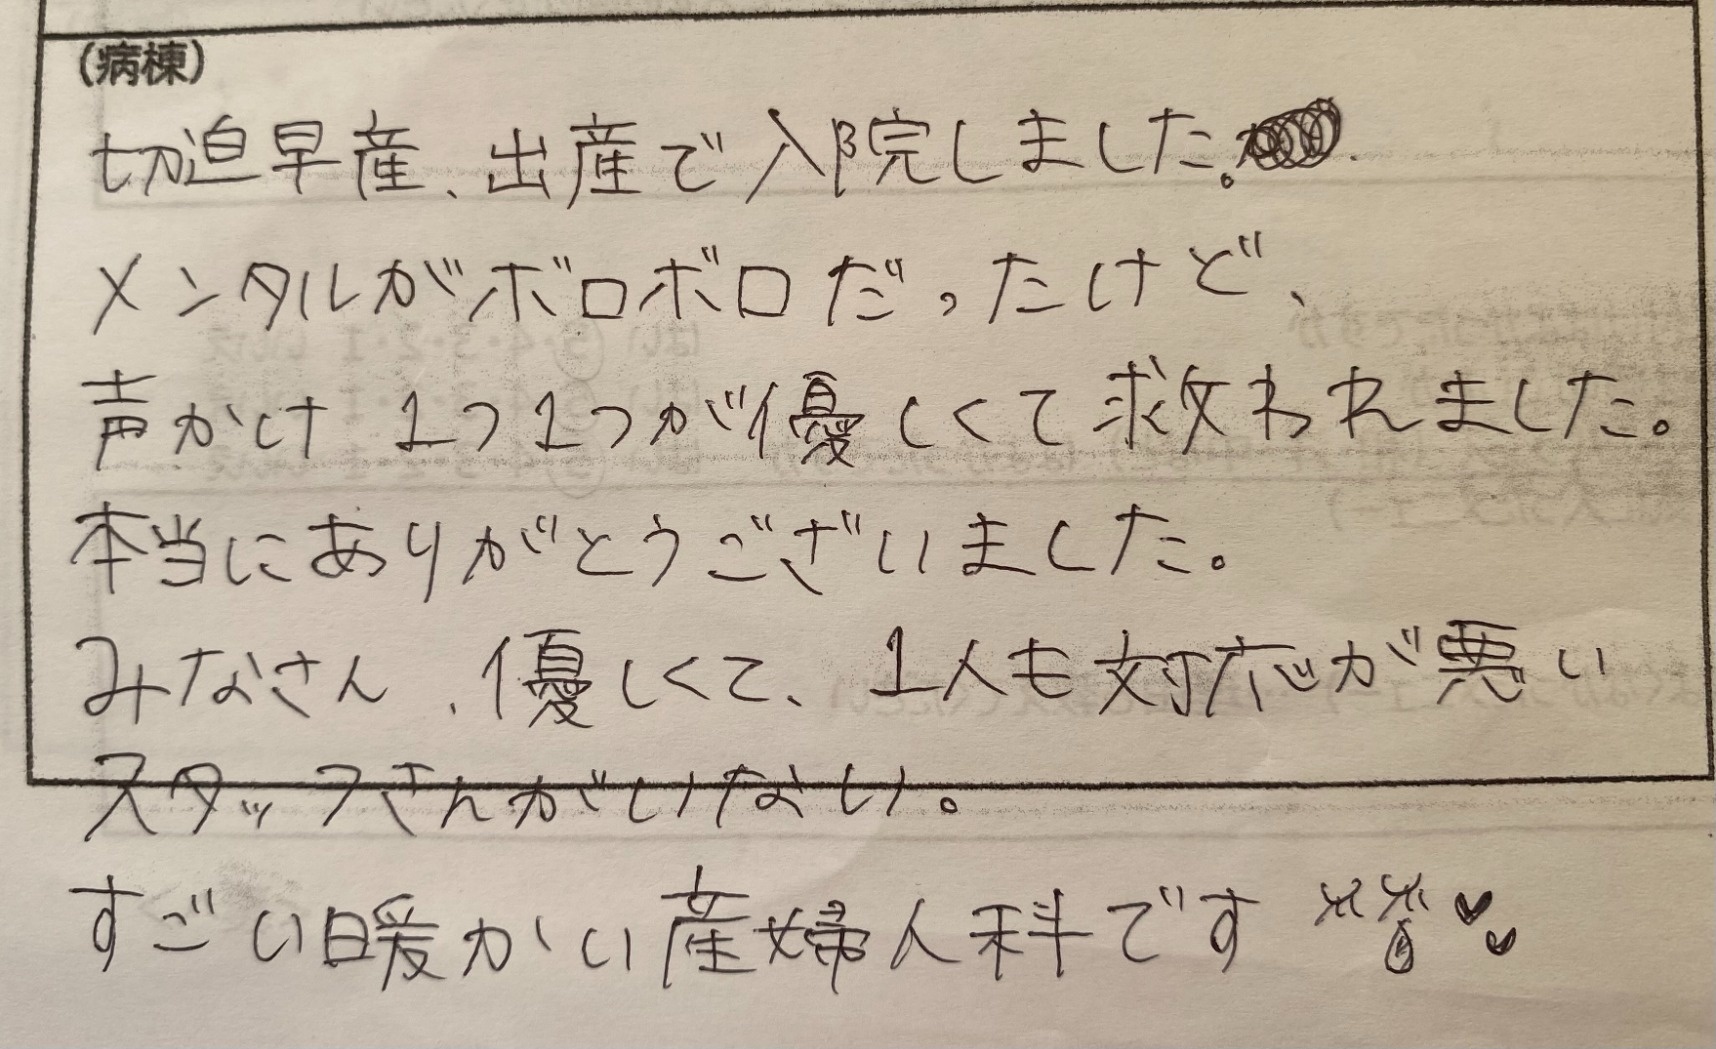 (病棟)
切迫早産、出産で入院しました。
メンタルがボロボロだったけど、
声かけ1つ1つが優しくて救われました。
本当にありがとうございました。
みなさん、優しくて、1人も対応が悪い
スタッフさんがいない。
すごい暖かい産婦人科です